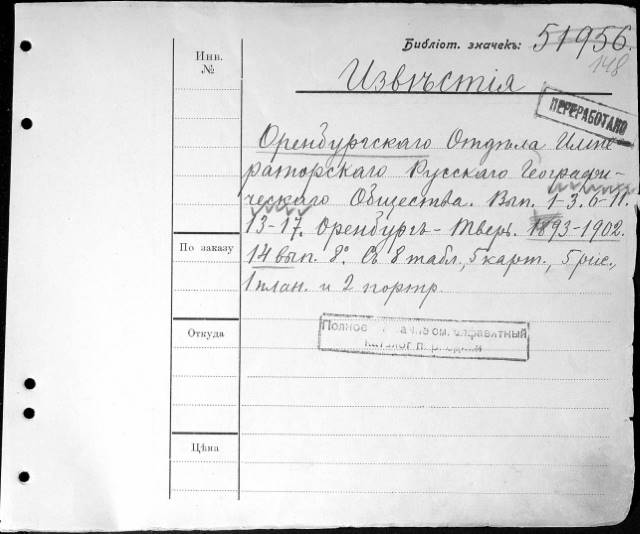 Библіот. значекъ: 51956.
148
Инв.
№
Извѣстія
ПЕРЕРАБОТАНО
Оренбургскаго Отдѣла Импе-
раторскаго Русскаго Географи-
ческаго Общества. Вып. 1-3. 6-11.
13-17. Оренбургъ - Тверь. 1893-1902.
По заказу
14 вып. 8°. Съ 8 табл., 5 карт., 5 рис.,
1 план. и 2 портр.
Откуда
Полное см. алфавитный
каталог
Цѣна